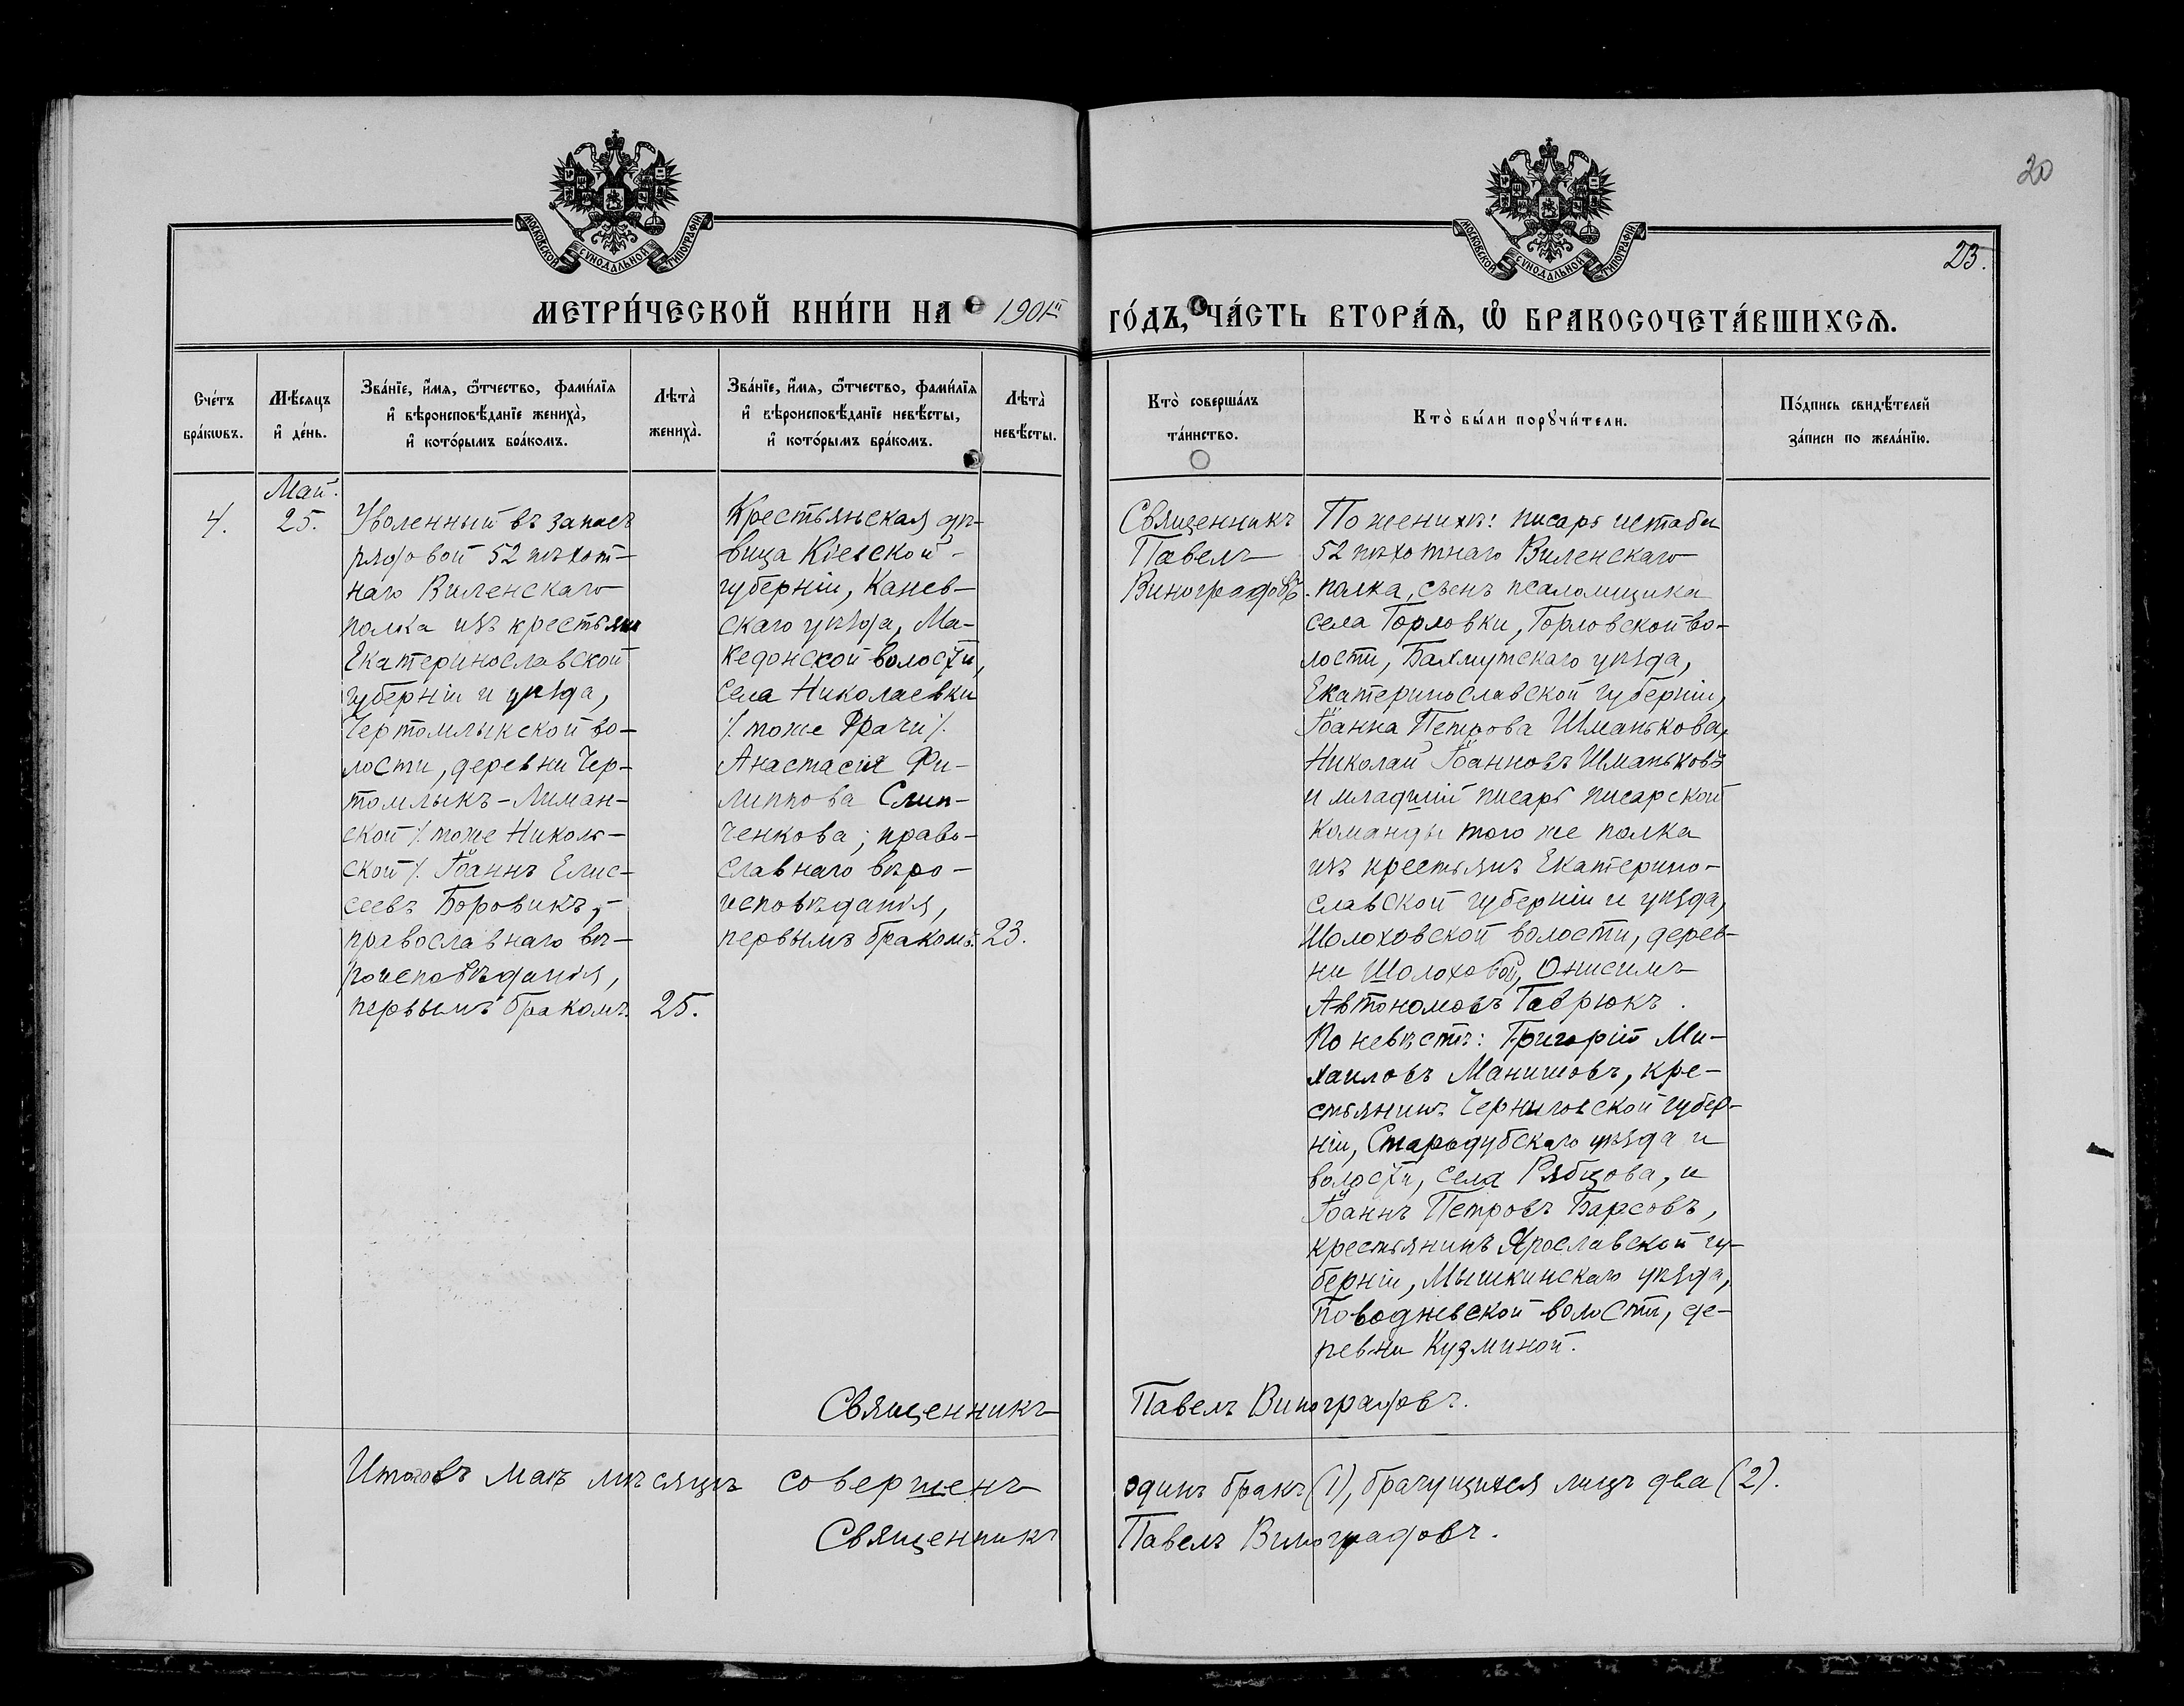 20
23.
МОСКОВСКОЙ СУНОДАЛЬНОЙ ТИПОГРАФІИ
МОСКОВСКОЙ СУНОДАЛЬНОЙ ТИПОГРАФІИ
МЕТРИ́ЧЕСКОЙ КНИ́ГИ НА 1901й ГО́ДЪ, ЧА́СТЬ ВТОРА́Ѧ, Ѡ҆ БРАКОСОЧЕТА́ВШИХСѦ.
Сче́тъ
бра́кѡвъ.
Мѣ́сяцъ
и҆ де́нь.
Зва́нїе, и҆́мя, ѻ҆́тчество, фами́лїя
и҆ вѣроисповѣ́данїе жениха̀,
и҆ кото́рымъ бра́комъ.
Лѣта̀
жениха̀.
Зва́нїе, и҆́мя, ѻ҆́тчество, фами́лїя
и҆ вѣроисповѣ́данїе невѣ́сты,
и҆ кото́рымъ бра́комъ.
Лѣта̀
невѣ́сты.
Кто̀ соверша́лъ
та́инство.
Кто̀ бы́ли порꙋчи́тели.
По́дпись свидѣ́телей
за́писи по жела́нїю.
4.
Май.
25.
Уволенный въ запасъ
рядовой 52 пѣхот-
наго Виленскаго
полка изъ крестьян
Екатеринославской
губерніи и уѣзда,
Чертомлыкской во-
лости, деревни Чер-
томлыкъ-Лиман-
ской /. тоже Николь-
ской /. Іоаннъ Елис-
сеевъ Боровикъ,-
православнаго вѣ-
роисповѣданія,
первымъ бракомъ.
25.
Крестьянская дѣ-
вица Кіевской-
губерніи, Канев-
скаго уѣзда, Ма-
кедонской волости,
села Николаевки
/. тоже Грачи /.
Анастасія Фи-
липпова Слип-
ченкова; право-
славнаго вѣро-
исповѣданія,
первымъ бракомъ.
23.
Священникъ
Павелъ
Виноградовъ.
По женихѣ: писарь штаба
52 пѣхотнаго Виленскаго
полка, сынъ псаломщика
села Горловки, Горловской во-
лости, Бахмутскаго уѣзда,
Екатеринославской губерніи,
Іоанна Петрова Шманькова,
Николай Іоанновъ Шманьковъ
и младшій писарь писарской
команды того же полка
изъ крестьянъ Екатерино-
славской губерніи и уѣзда,
Шолоховской волости, дерев-
ни Шолоховой, Онисимъ
Автономовъ Гаврюкъ.
По невѣстѣ: Григорій Ми-
хаиловъ Манишовъ, кре-
стьянинъ Черниговской губер-
ніи, Стародубскаго уѣзда и
волости, села Рябцова, и
Іоаннъ Петровъ Барсовъ,
крестьянинъ Ярославской гу-
берніи, Мышкинскаго уѣзда,
Поводневской волости, де-
ревни Кузминой.
Священникъ Павелъ Виноградовъ.
Итого въ маѣ мѣсяцѣ совершенъ одинъ бракъ (1), брачущихся лицъ два (2).
Священникъ Павелъ Виноградовъ.